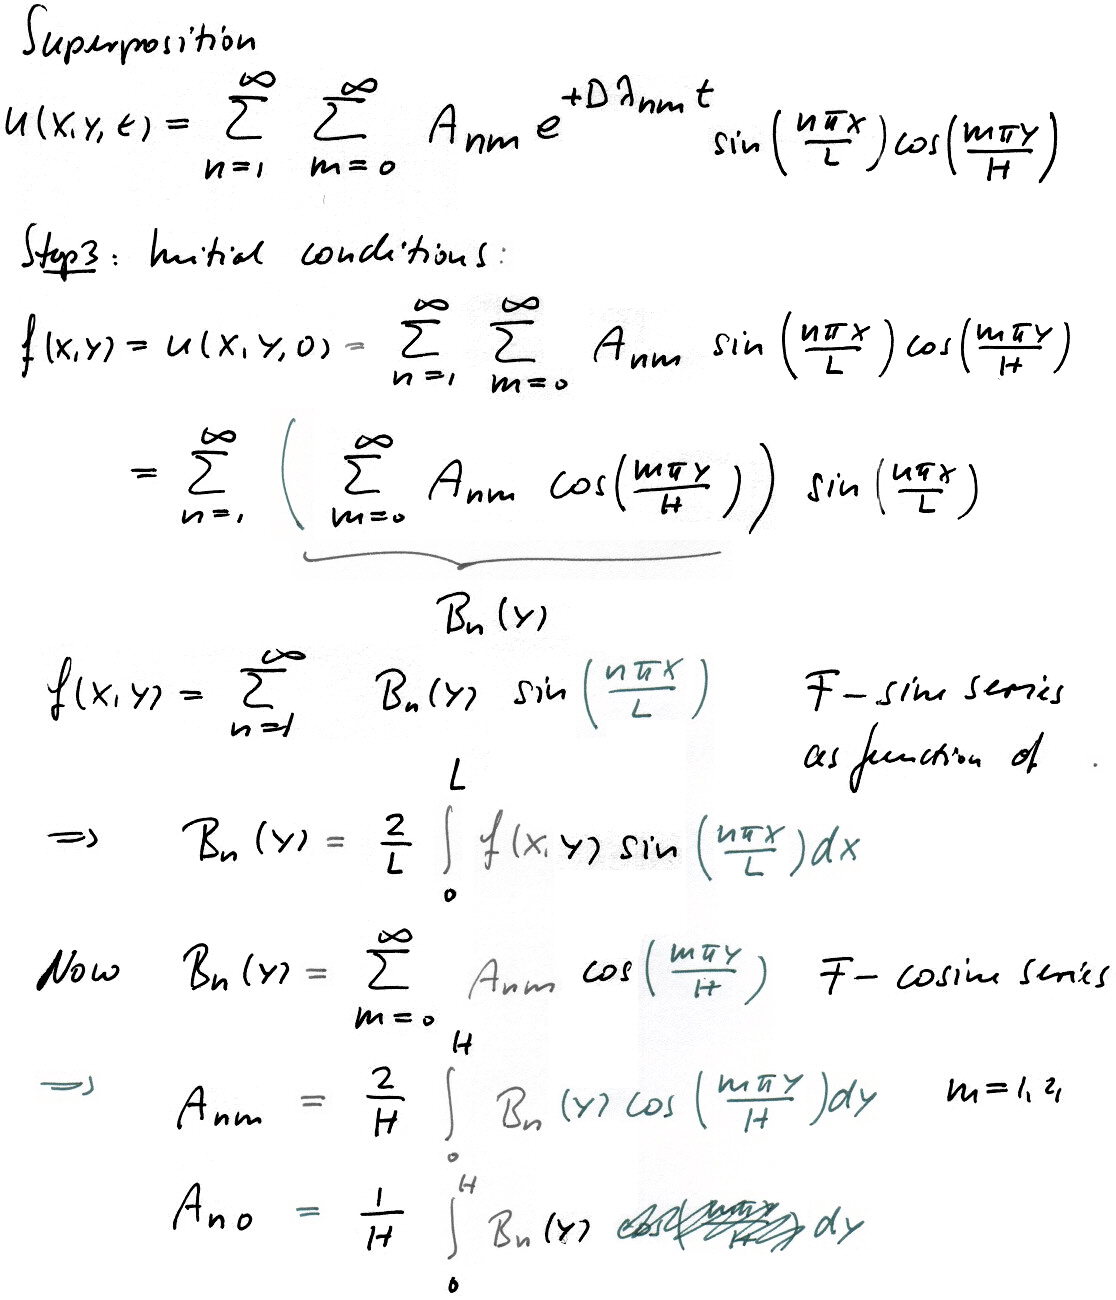 Superposition
u(x,y,t) = ∑_{n=1}^{∞} ∑_{m=0}^{∞} A_{nm} e^{+Dλ_{nm}t} sin(nπx/L) cos(mπy/H)
Step3: Initial conditions:
f(x,y) = u(x,y,0) = ∑_{n=1}^{∞} ∑_{m=0}^{∞} A_{nm} sin(nπx/L) cos(mπy/H)
= ∑_{n=1}^{∞} (∑_{m=0}^{∞} A_{nm} cos(mπy/H)) sin(nπx/L)
B_n(y)
f(x,y) = ∑_{n=1}^{∞} B_n(y) sin(nπx/L) F-sine series
as function of
⇒ B_n(y) = 2/L ∫_0^L f(x,y) sin(nπx/L) dx
Now B_n(y) = ∑_{m=0}^{∞} A_{nm} cos(mπy/H) F-cosine series
⇒ A_{nm} = 2/H ∫_0^H B_n(y) cos(mπy/H) dy m=1,2,
A_{n0} = 1/H ∫_0^H B_n(y) dy